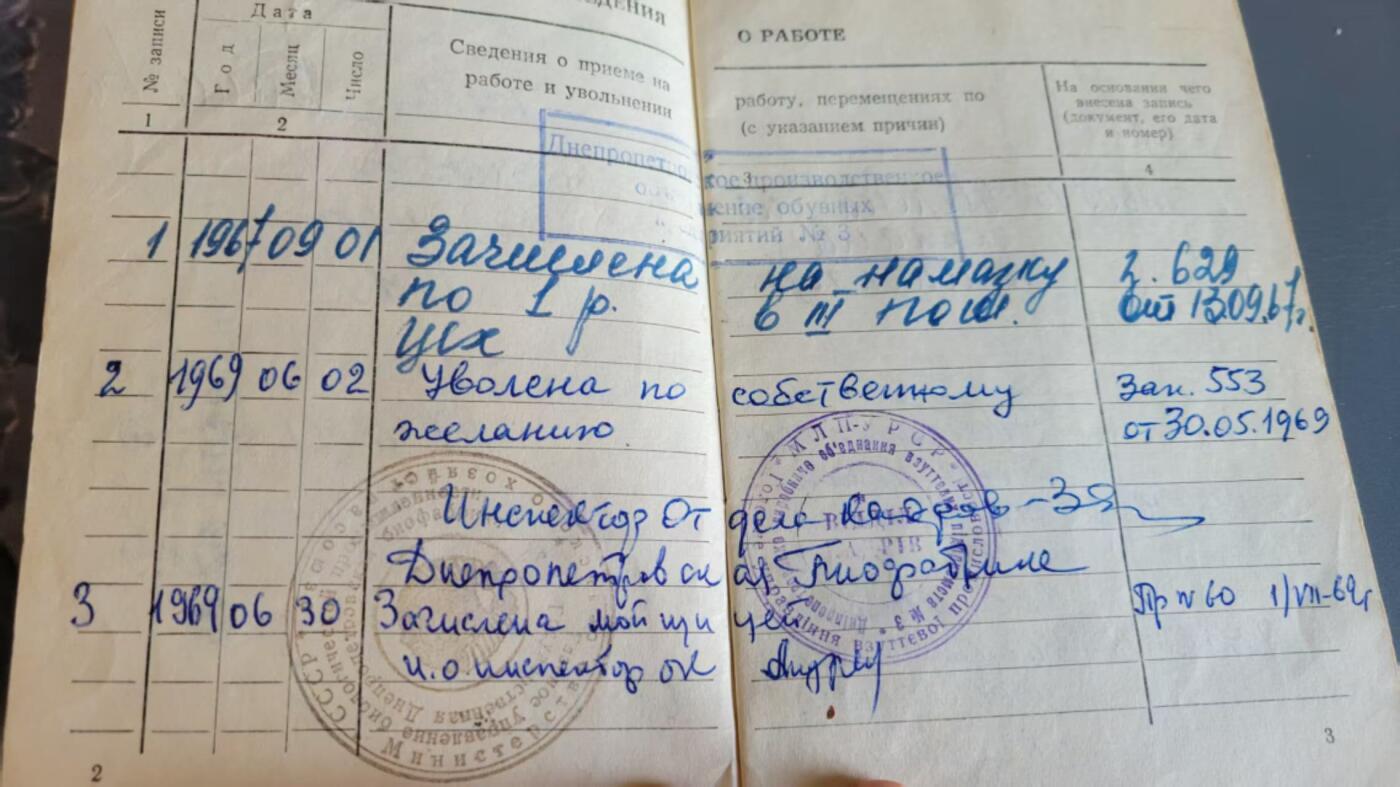 СВЕДЕНИЯ О РАБОТЕ
№ записи
Дата
Год
Месяц
Число
Сведения о приеме на работу, перемещениях по
работе и увольнении (с указанием причин)
На основании чего
внесена запись
(документ, его дата
и номер)
1 2 3 4
Днепропетровское производственное
объединение обувных
предприятий № 3
1 1967 09 01 Зачислена на намазку 629
по 1 р. в III пош. от 13.09.67г.
цех
2 1969 06 02 Уволена по собственному Зак. 553
желанию от 30.05.1969
Инспектор Отдела кадров
Днепропетровская биофабрика
3 1969 06 30 Зачислена мойщицей Пр N 60 1/VII-69г
и.о. инспектор ОК
МЛП УРСР
ВІДДІЛ
КАДРІВ
СССР
Министерство
2
3